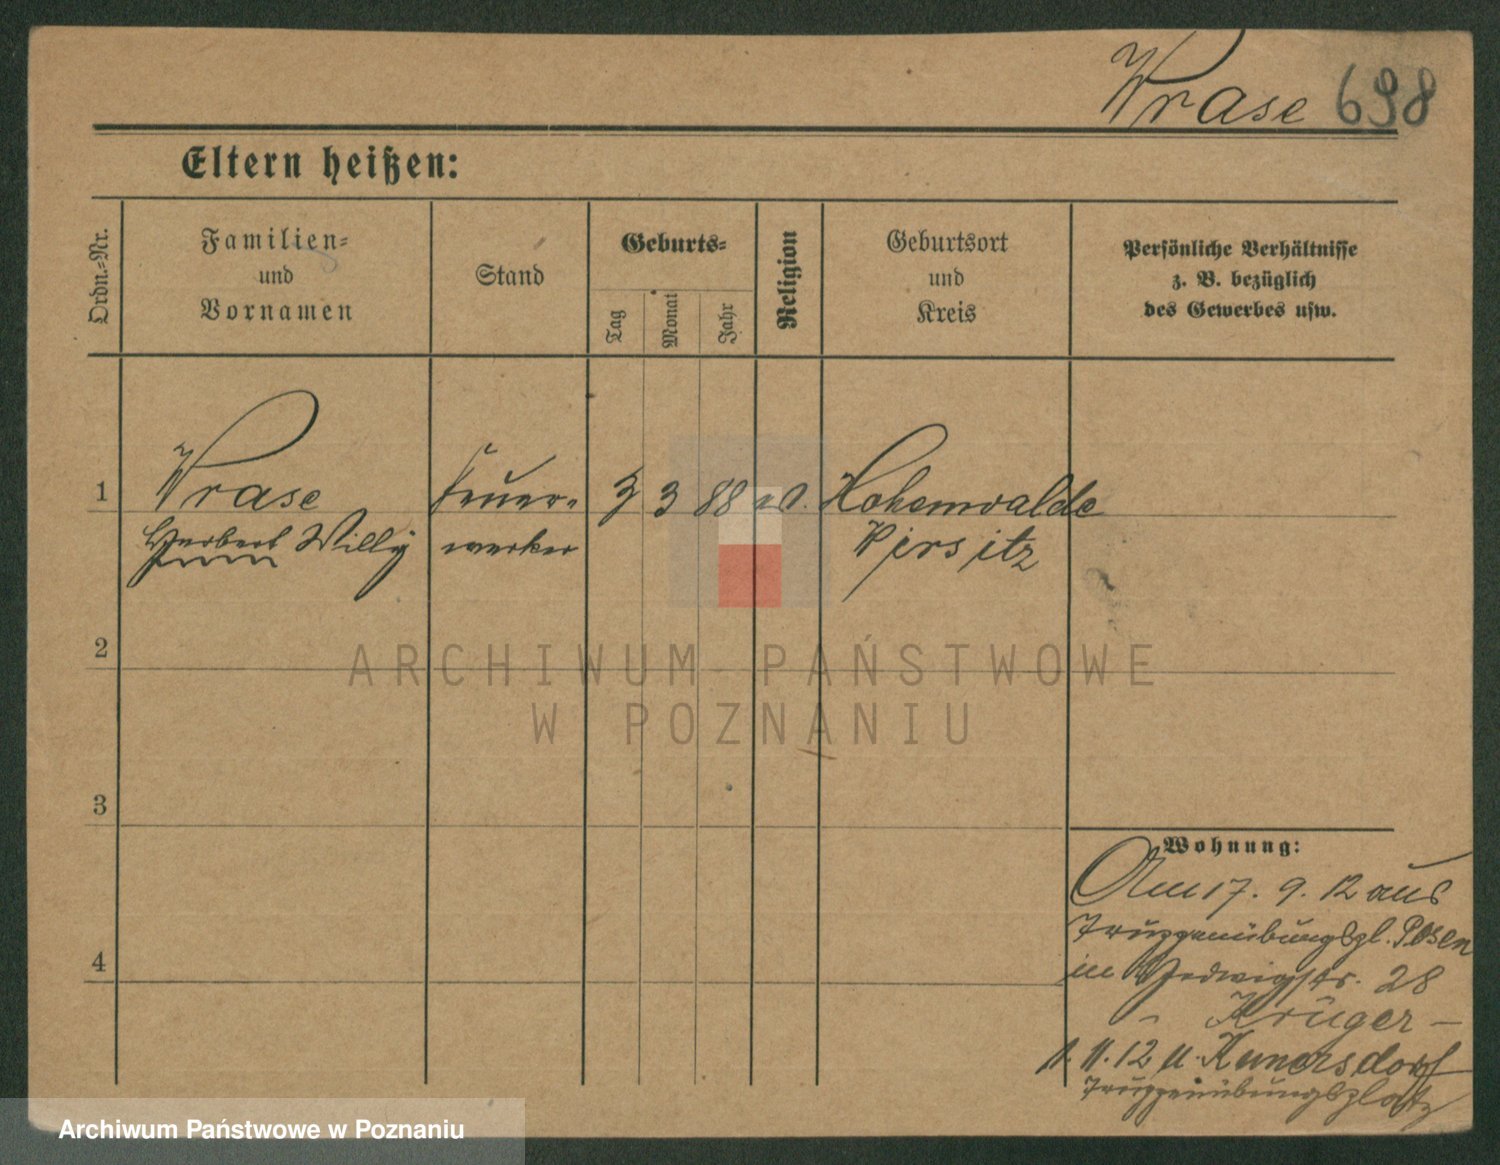 Wrase 698
Eltern heißen:
Ordn.-Nr.
Familien-
und
Vornamen
Stand
Geburts-
Tag
Monat
Jahr
Religion
Geburtsort
und
Kreis
Persönliche Verhältnisse
z. B. bezüglich
des Gewerbes usw.
1
Wrase
Herbert Willy
Feuer-
werker
3 3 88 ev.
Hohenwalde
Pirsitz
2
ARCHIWUM PAŃSTWOWE
W POZNANIU
3
4
Wohnung:
Am 17. 9. 12 aus
Truppenübungspl. Posen
in Hedwigstr. 28
- Krüger -
1. 11. 12 n. Kunersdorf
Truppenübungsplatz
Archiwum Państwowe w Poznaniu